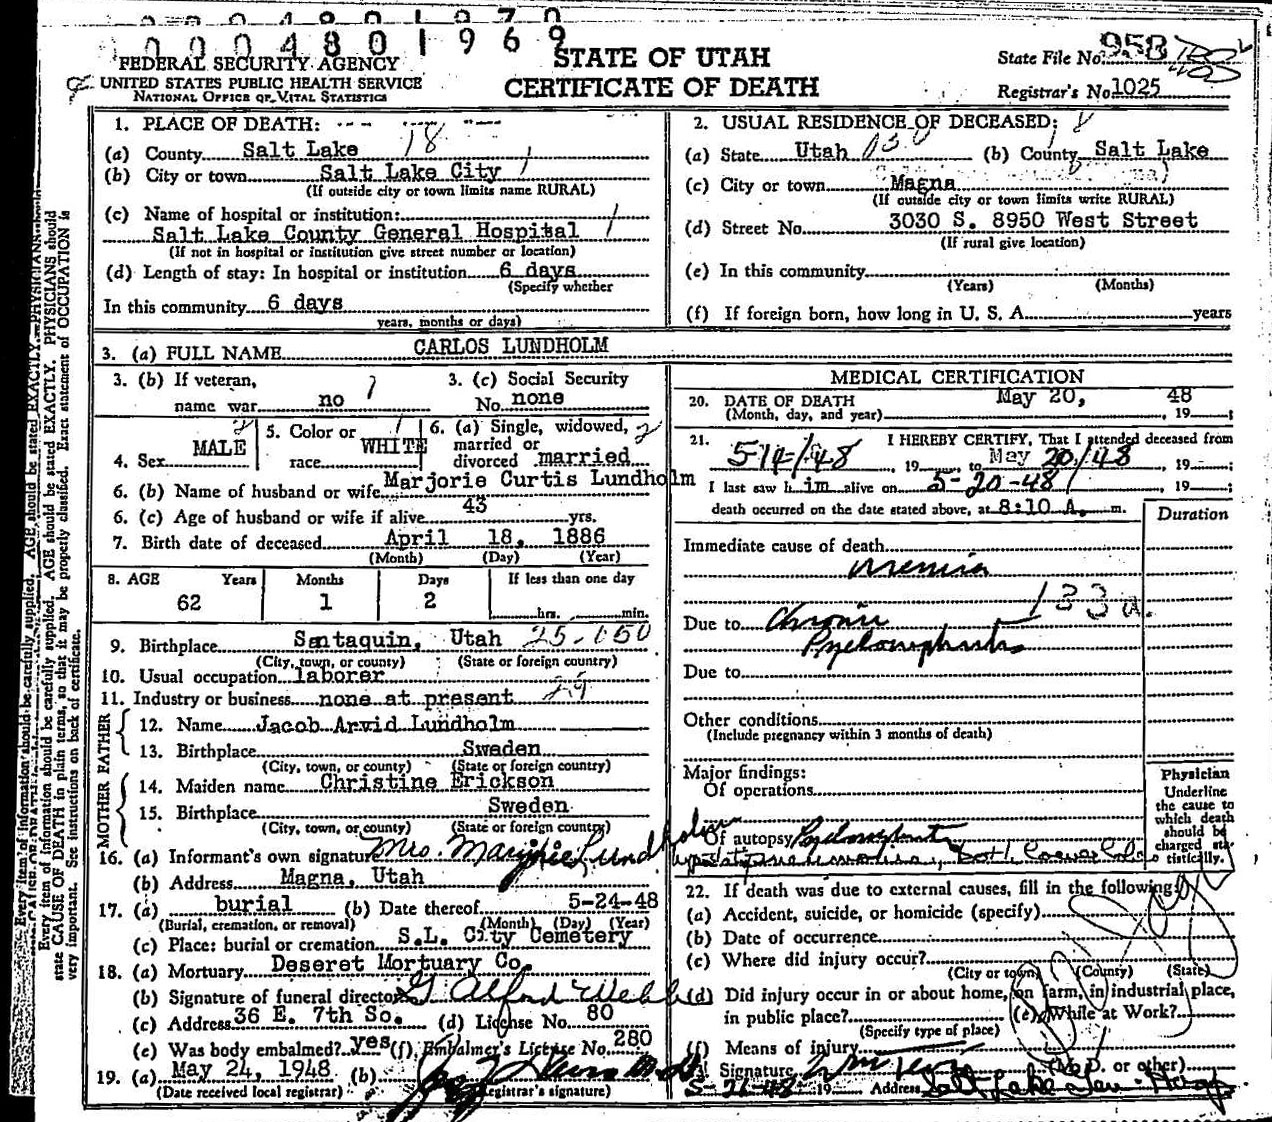 0004801969
FEDERAL SECURITY AGENCY
UNITED STATES PUBLIC HEALTH SERVICE
NATIONAL OFFICE OF VITAL STATISTICS
STATE OF UTAH
CERTIFICATE OF DEATH
State File No. 958
Registrar's No. 1025
1. PLACE OF DEATH:
(a) County Salt Lake 18
(b) City or town Salt Lake City 1
(If outside city or town limits name RURAL)
(c) Name of hospital or institution:
Salt Lake County General Hospital 1
(If not in hospital or institution give street number or location)
(d) Length of stay: In hospital or institution 6 days
(Specify whether
In this community 6 days
years, months or days)
2. USUAL RESIDENCE OF DECEASED:
(a) State Utah (b) County Salt Lake
(c) City or town Magna
(If outside city or town limits write RURAL)
(d) Street No. 3030 S. 8950 West Street
(If rural give location)
(e) In this community
(Years) (Months)
(f) If foreign born, how long in U. S. A. years
3. (a) FULL NAME CARLOS LUNDHOLM
3. (b) If veteran,
name war no
3. (c) Social Security
No. none
4. Sex MALE
5. Color or
race WHITE
6. (a) Single, widowed,
married or
divorced married
6. (b) Name of husband or wife Marjorie Curtis Lundholm
6. (c) Age of husband or wife if alive 43 yrs.
7. Birth date of deceased April 18, 1886
(Month) (Day) (Year)
8. AGE Years Months Days If less than one day
62 1 2 hrs. min.
9. Birthplace Santaquin, Utah 25-050
(City, town, or county) (State or foreign country)
10. Usual occupation laborer
11. Industry or business none at present
FATHER
12. Name Jacob Arvid Lundholm
13. Birthplace Sweden
(City, town, or county) (State or foreign country)
MOTHER
14. Maiden name Christine Erickson
15. Birthplace Sweden
(City, town, or county) (State or foreign country)
16. (a) Informant's own signature Mrs. Marjorie Lundholm
(b) Address Magna, Utah
17. (a) burial (b) Date thereof 5-24-48
(Burial, cremation, or removal) (Month) (Day) (Year)
(c) Place: burial or cremation S.L. City Cemetery
18. (a) Mortuary Deseret Mortuary Co.
(b) Signature of funeral director G Alford Webb
(c) Address 36 E. 7th So. (d) License No. 80
(e) Was body embalmed? yes (f) Embalmer's License No. 280
19. (a) May 24, 1948 (b)
(Date received local registrar) (Registrar's signature)
MEDICAL CERTIFICATION
20. DATE OF DEATH May 20, 48
(Month, day, and year) 19
21. I HEREBY CERTIFY, That I attended deceased from
5-14-/48, 19 , to May 20/48, 19 ;
I last saw h im alive on 5-20-48, 19 ;
death occurred on the date stated above, at 8:10 A. m.
Duration
Immediate cause of death
uremia
133a.
Due to Chronic
Pyelonephritis
Due to
Other conditions
(Include pregnancy within 3 months of death)
Major findings:
Of operations
Of autopsy Pyelonephritis
Physician
Underline
the cause to
which death
should be
charged sta-
tistically.
22. If death was due to external causes, fill in the following:
(a) Accident, suicide, or homicide (specify)
(b) Date of occurrence
(c) Where did injury occur?
(City or town) (County) (State)
(d) Did injury occur in or about home, on farm, in industrial place,
in public place? (e) While at Work?
(Specify type of place)
(f) Means of injury
Signature (M. D. or other)
5-21-48 19 Address Salt Lake Gen. Hosp
Every item of information should be carefully supplied. AGE should be stated EXACTLY. PHYSICIANS should
state CAUSE OF DEATH in plain terms, so that it may be properly classified. Exact statement of OCCUPATION is
very important. See instructions on back of certificate.